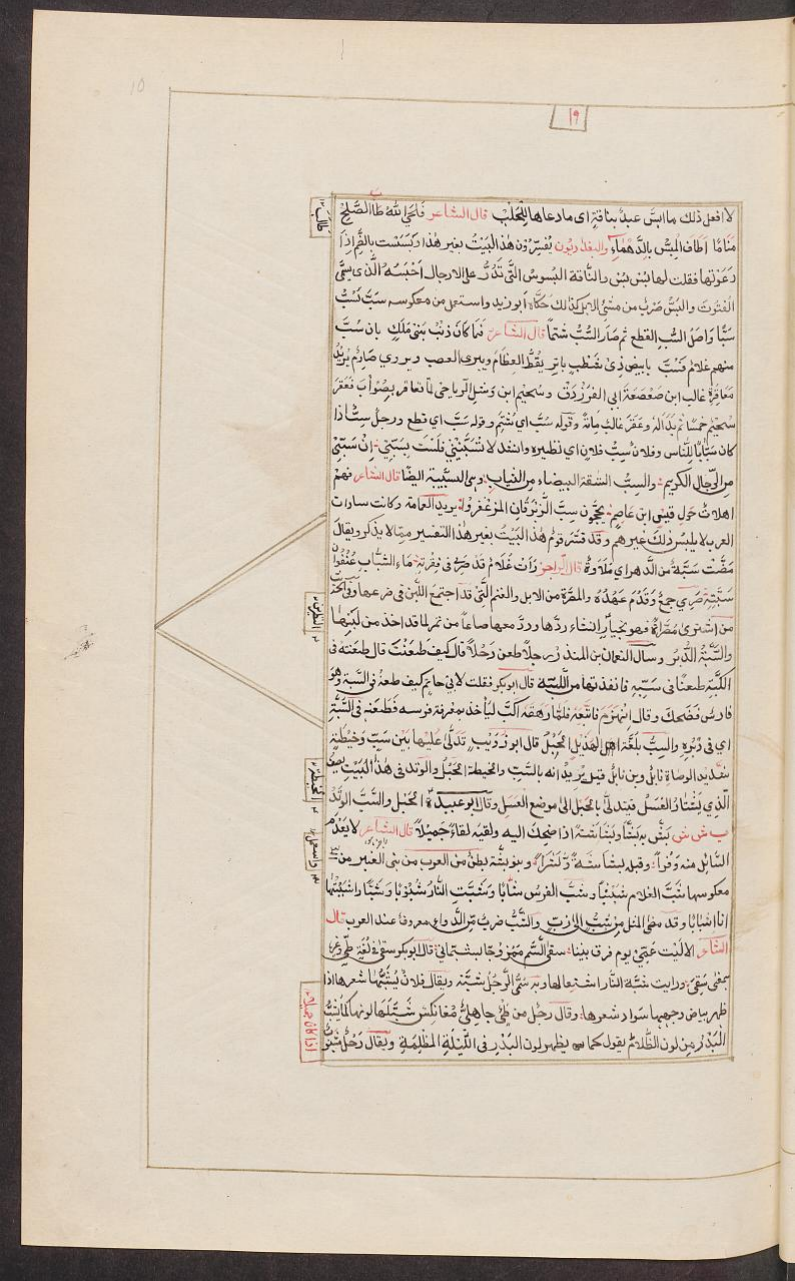 ١٩
لا افعل ذلك ما ابسّ عبدٌ بناقةٍ اى ما دعاها للحلب قال الشاعر فلحى اللهُ طالبَ الصّلح
منّا ما اطاف المبسّ بالدّهماء والبغداديون يفسّرون هذا البيت بغير هذا وبَسَسْت بالغنم اذا
دعوتها فقلت لها بُس بُس والناقة البَسوس التى تدرّ على الابساس
الفتوت والبسّ ضرب من مشى الابل كذلك حكاه ابو زيد واستعمل من معكوسه سَبّ يَسُبُّ
سبًّا واصل السّبّ القطع ثم صار السّبّ شتمًا قال الشاعر فما كان ذنبُ بنى مَلكٍ بان سُبّ
منهم غلامٌ فسبّ بابيض ذى شطبٍ باترٍ يقُطّ العظام ويبرى العصب ويروى صارم يريد
معاقرة غالب ابن صعصعة ابى الفرزدق وسحيم ابن وثيل الرياحى لما تعاقرا بصوأر فعقر
سحيم خمسًا ثم بدا له وعقر غالب مائة وقوله سُبّ اى شُتِم وقوله سَبّ اى قطع ورجل سِبٌّ اذا
كان سبّابًا للناس وفلان سِبّ فلان اى نظيره وانشد لا تسُبّنّنى فلستَ بسِبّى ان سِبّى
من الرّجال الكريم والسِبّ الشقة البيضاء من الثياب وهى السّبيبة ايضًا قال الشاعر فهم
اهلات حول قيس ابن عاصم يحجّون سِبّ الزّبرقان المزعفرا يريد العمامة وكانت سادات
العرب لا يلبس ذلك غيرهم وقد فسّر قوم هذا البيت بغير هذا التفسير مما لا يذكر ويقال
مضت سَبّة من الدهر اى ملاوة قال الراجز رأت غلامًا قد صرى فى فقرته ماء الشباب عنفوان
سَنبته صَرِى جمع وقَدُم عهده والمصرّاة من الابل والغنم التى قد اجتمع اللبن فى ضرعها وفى الحديث
من اشترى مُصرّاةً فهو بخيار ان شاء ردّها وردّ معها صاعًا من تمر لما قد اخذ من لبنها
والسّبّة الدُبُر وسال النعمان بن المنذر رجلًا طعن رجلًا قال كيف طعنتَ قال طعنته فى
الكبّة طعنًا فى سبّه فانفذتها من اللبّه قال ابو بكر فقلت لابى حاتم كيف طعنه فى السّبّة وهو
فارس فضحك وقال انهزم فاتبعه فلما رهقه اكبّ ليأخذ بمعرفة فرسه فطعنه فى السّبّة
اى فى دُبُره والسِبّ بلغة اهل الهذيل الحبل قال ابو ذؤيب تدلّى عليها بين سِبّ وخَيطةٍ
شديد الوصاة نابل وبن نابل قيل يريد انه بالسّب والخيطة الحبل والوتد فى هذا البيت يصف
الّذى يشتار العسل فيتدلّى بالحبل الى موضع العسل وقال ابو عبيدة الحبل والسّبّ الوتد
ب ش ش بَشّ به بشًّا وبشاشة اذا ضحك اليه ولقيه لقاءً جميلًا قال الشاعر لا يعدم
السائل منه وفرًا وقبله بشاشة وبشرا وبنو بشّة بطن من العرب من بنى العنبر من
معكوسها شبّ الغلام شبيبًا وشبّ الفرس شبابًا وشبّت النار شبوبًا وشبًّا واشببتها
انا اشبابًا وقد مضى المثل من شبّ الى دبّ والشّبّ ضرب من الدواء معروف عند العرب قال
الشاعر الا ليت عمّى يوم فرق بيننا سقى السّم ممزوجًا بشبّ يمانى قال ابو بكر سقى فى لغة طىّ
بمعنى سُقِى ورايت شبّة النّار اشتعالها وبه سمّى الرّجل شبّة ويقال فلان يشبّها شعرها اذا
ظهر بياض وجهها سواد شعرها وقال رجل من طىّ جاهلىّ معلنكس شبّ لها لونها كما يشبّ
البدرَ من لون الظلام يقول كما يظهر لون البدر فى الليلة المظلمة ويقال رجل مشبوب
طالب
الخيطة
واستعمل
اذا كان جميلا